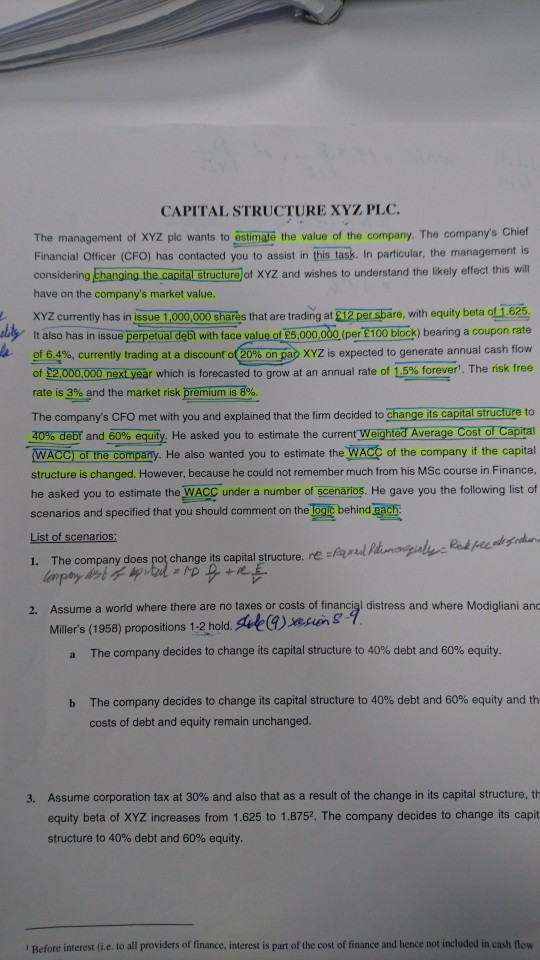 CAPITAL STRUCTURE XYZ PLC.
The management of XYZ plc wants to estimate the value of the company. The company's Chief
Financial Officer (CFO) has contacted you to assist in this task. In particular, the management is
considering changing the capital structure of XYZ and wishes to understand the likely effect this will
have on the company's market value.
XYZ currently has in issue 1,000,000 shares that are trading at £12 per share, with equity beta of 1.625.
It also has in issue perpetual debt with face value of £5,000,000 (per £100 block) bearing a coupon rate
of 6.4%, currently trading at a discount of 20% on par. XYZ is expected to generate annual cash flow
of £2,000,000 next year which is forecasted to grow at an annual rate of 1.5% forever¹. The risk free
rate is 3% and the market risk premium is 8%.
The company's CFO met with you and explained that the firm decided to change its capital structure to
40% debt and 60% equity. He asked you to estimate the current Weighted Average Cost of Capital
(WACC) of the company. He also wanted you to estimate the WACC of the company if the capital
structure is changed. However, because he could not remember much from his MSc course in Finance,
he asked you to estimate the WACC under a number of scenarios. He gave you the following list of
scenarios and specified that you should comment on the logic behind each:
List of scenarios:
1. The company does not change its capital structure. re =
= rD D/V + re E/V
2. Assume a world where there are no taxes or costs of financial distress and where Modigliani and
Miller's (1958) propositions 1-2 hold. slide (9) session 8-9
a The company decides to change its capital structure to 40% debt and 60% equity.
b The company decides to change its capital structure to 40% debt and 60% equity and th
costs of debt and equity remain unchanged.
3. Assume corporation tax at 30% and also that as a result of the change in its capital structure, th
equity beta of XYZ increases from 1.625 to 1.875². The company decides to change its capit
structure to 40% debt and 60% equity.
¹ Before interest (i.e. to all providers of finance, interest is part of the cost of finance and hence not included in cash flow